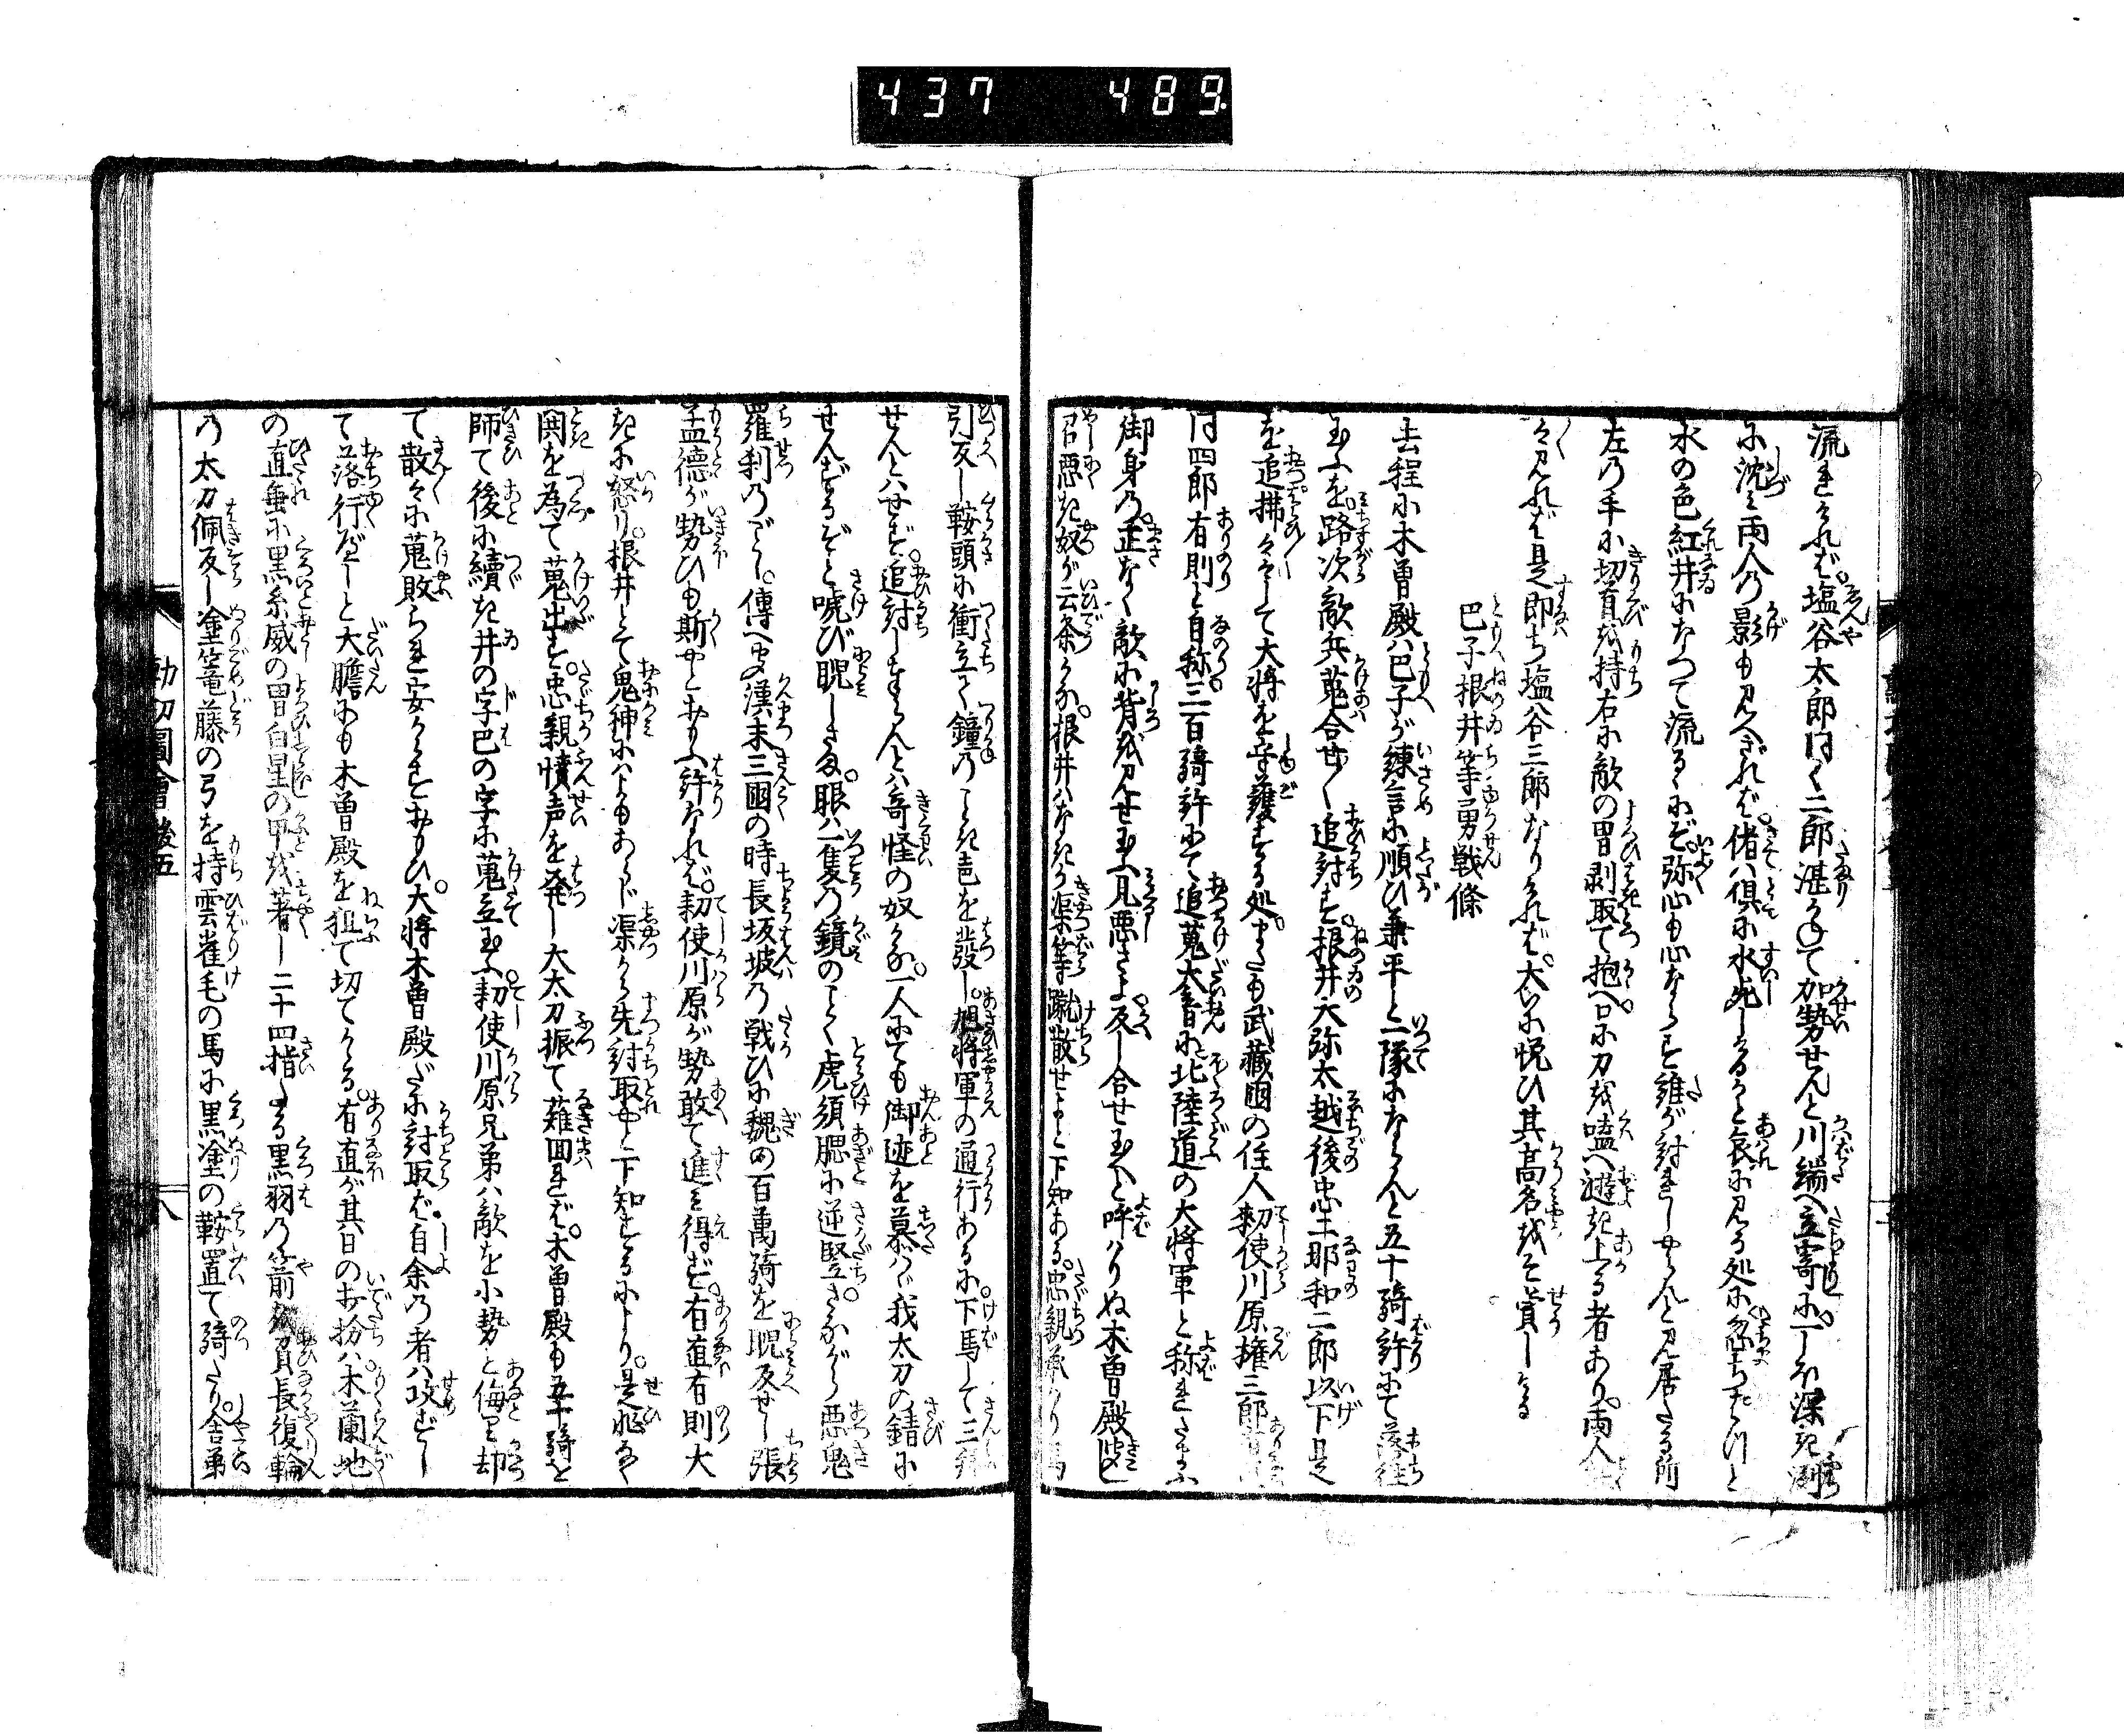 437 489
流まれば塩谷太郎同く二郎湛かねて加勢せんと川端へ立寄に一しほ深き渕
に沈み両人の影も見へざれば偖ハ倶に水死しけるかと哀に見る処に忽ち
水の色紅井になつて流るゝにぞ弥心も心ならず誰が討れしやらんと見居たる所
左の手に切首を持右に敵の冑剥取て抱へ口に刀を嗑へ游ぎ上る者あり両人
見れば是即ち塩谷三郎なりければ大に悦び其高名をそ賞しける
巴子根井等勇戦條
去程に木曽殿ハ巴子が練言に順ひ兼平と一隊にならんと五十騎許にて落往
玉ふを路次敵兵蒐合せ〳〵追討す根井大弥太越後忠士那和二郎以下是
を追拂々々して大将を守護する処またも武藏国の住人勅使川原権三郎
同四郎有則と自称三百騎許にて追蒐大音に北陸道の大将軍と称れたまふ
御身の正なく敵に背を見せ玉ふ見悪さよ反し合せ玉へと呼はりぬ木曽殿
召悪き奴が云条かな根井ハなきか渠等蹴散せよと下知ある忠親承り馬
引反し鞍頭に衝立て鐘のごとき声を發し旭将軍の通行あるに下馬して三拜
せんとハせず追討しまいらせんとハ奇怪の奴かな一人にても御跡を慕ハヾ我太刀の錆に
せんずるぞと唬び睨したる眼ハ二隻の鏡のごとく虎須腮に逆竪さながら悪鬼
羅刹のごとし傳へ聞漢末三国の時長坂坡の戦ひに魏の百萬騎を睨反せし張
孟德が勢ひも斯やとおもふ許なれば勅使川原が勢敢て進み得ず有直有則大
きに怒り根井とて鬼神にハよもあらじ渠から先討取やと下知するにより是非なく
鬨を為て蒐出す忠親憤声を発し大太刀振て薙回れば木曽殿も五十騎を
師て後に續き井の字巴の字に蒐立玉ふ勅使川原兄弟ハ敵を小勢と侮り却
て散々に蒐敗られ安からずおもひ大将木曽殿だに討取ば自余の者ハ攻ずし
て落行べしと大膽にも木曽殿を狙て切てかゝる有直が其日の打扮ハ木蘭地
の直垂に黒糸威の冑白星の甲を著し二十四指たる黒羽の箭を負長復輪
の太刀佩反し塗篭藤の弓を持雲雀毛の馬に黒塗の鞍置て騎たり舎弟
圖會後五
八